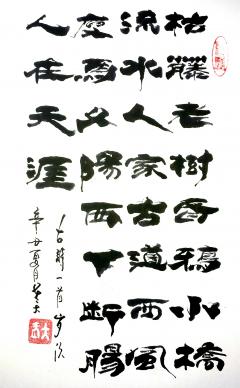 枯藤老樹昏鴉小橋
流水人家古道西風
瘦馬夕陽西下断腸
人在天涯
古詩一首岁次
辛丑夏月